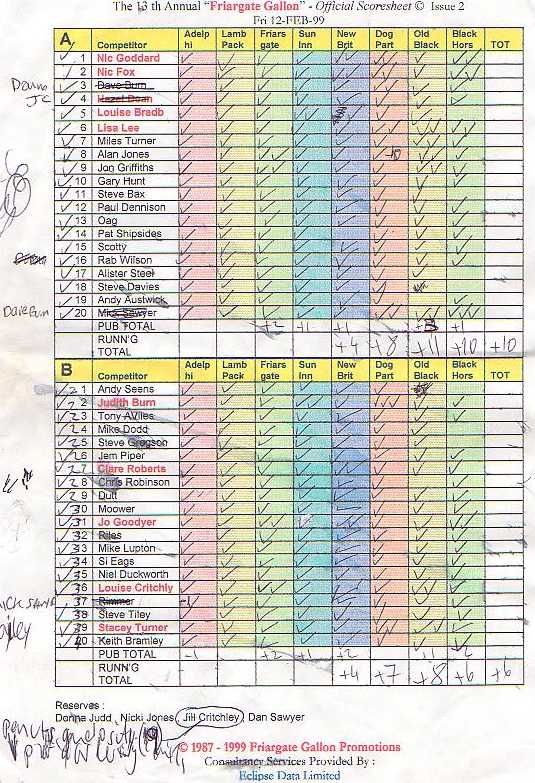 The 13 th Annual "Friargate Gallon" - Official Scoresheet © Issue 2
Fri 12-FEB-99
A Competitor Adelp hi Lamb Pack Friars gate Sun Inn New Brit Dog Part Old Black Black Hors TOT
1 Nic Goddard
2 Nic Fox
3 Dave Burn
4 Hazel Dean
5 Louise Bradb
6 Lisa Lee
7 Miles Turner
8 Alan Jones
9 Jon Griffiths
10 Gary Hunt
11 Steve Bax
12 Paul Dennison
13 Oag
14 Pat Shipsides
15 Scotty
16 Rab Wilson
17 Alister Steel
18 Steve Davies
19 Andy Austwick
Dave Burn 20 Mick Sawyer
PUB TOTAL +2 +1 +1 +3 +1
RUNN'G TOTAL +4 +8 +11 +10 +10
B Competitor Adelp hi Lamb Pack Friars gate Sun Inn New Brit Dog Part Old Black Black Hors TOT
21 Andy Seens
22 Judith Burn
23 Tony AViles
24 Mike Dodd
25 Steve Gregson
26 Jem Piper
27 Clare Roberts
28 Chris Robinson
29 Dutt
30 Moower
31 Jo Goodyer
32 Riles
33 Mike Lupton
34 Si Eags
35 Niel Duckworth
36 Louise Critchly
37 Rimmer -1
38 Steve Tiley
39 Stacey Turner
40 Keith Bramley
PUB TOTAL -1 +2 +1 +2
RUNN'G TOTAL +4 +7 +8 +6 +6
Reserves :
Donna Judd Nicki Jones Jill Critchley Dan Sawyer
© 1987 - 1999 Friargate Gallon Promotions
Consultancy Services Provided By :
Eclipse Data Limited